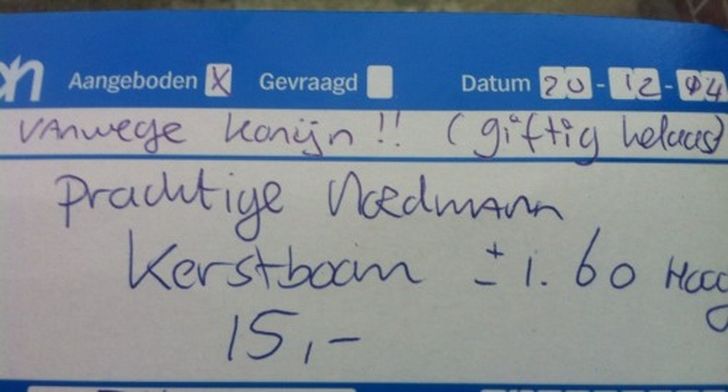 Aangeboden X Gevraagd Datum 20-12-04
vanwege konijn!! (giftig helaas)
Prachtige Noedmann
Kerstboom ± 1.60 Hoog
15,-